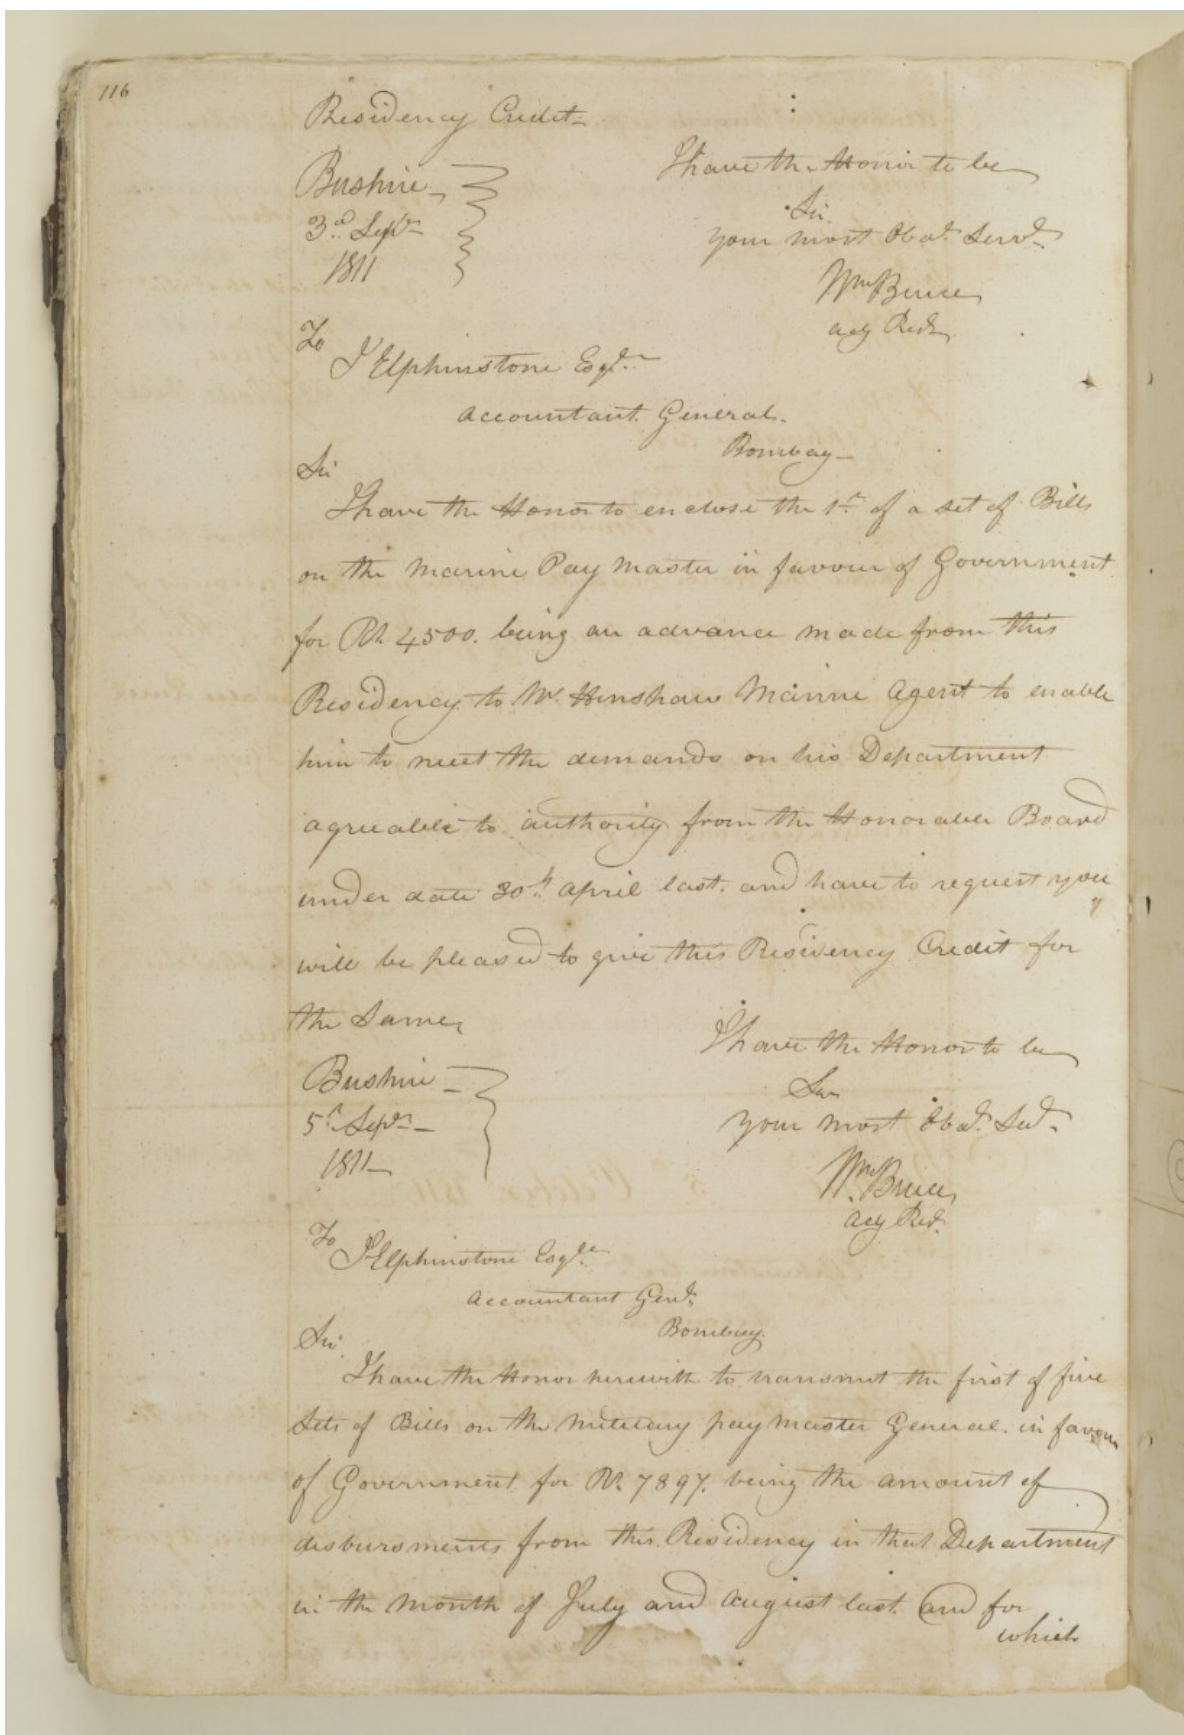 116
Residency Credit_
I have the Honor to be
Bushire_
Sir
3.d Sepr_
your most Obedt. Servt.
1811
Wm Bruce
actg Resdt
To
J Elphinstone Esqr.
Accountant General.
Bombay_
Sir
I have the Honor to enclose the 1st. of a set of Bills
on the Marine Pay Master in favour of Government
for Rs. 4500. being an advance made from this
Residency to Mr. Henshaw Marine Agent to enable
him to meet the demands on his Department
agreeable to authority from the Honorable Board
under date 30th. April last. and have to request you
will be pleased to give this Residency Credit for
the Same,
I have the Honor to be
Bushire_
Sir
5th Sepr_
your most Obedt. Sert.
1811_
Wm. Bruce,
actg Resdt.
To
J Elphinstone Esqre.
Accountant Genl.
Bombay.
Sir.
I have the Honor herewith to transmit the first of five
Sets of Bills on the Military pay master General. in favour
of Government for Rs. 7897. being the amount of
disbursments from this Residency in that Department
in the Month of July and August last. and for
which